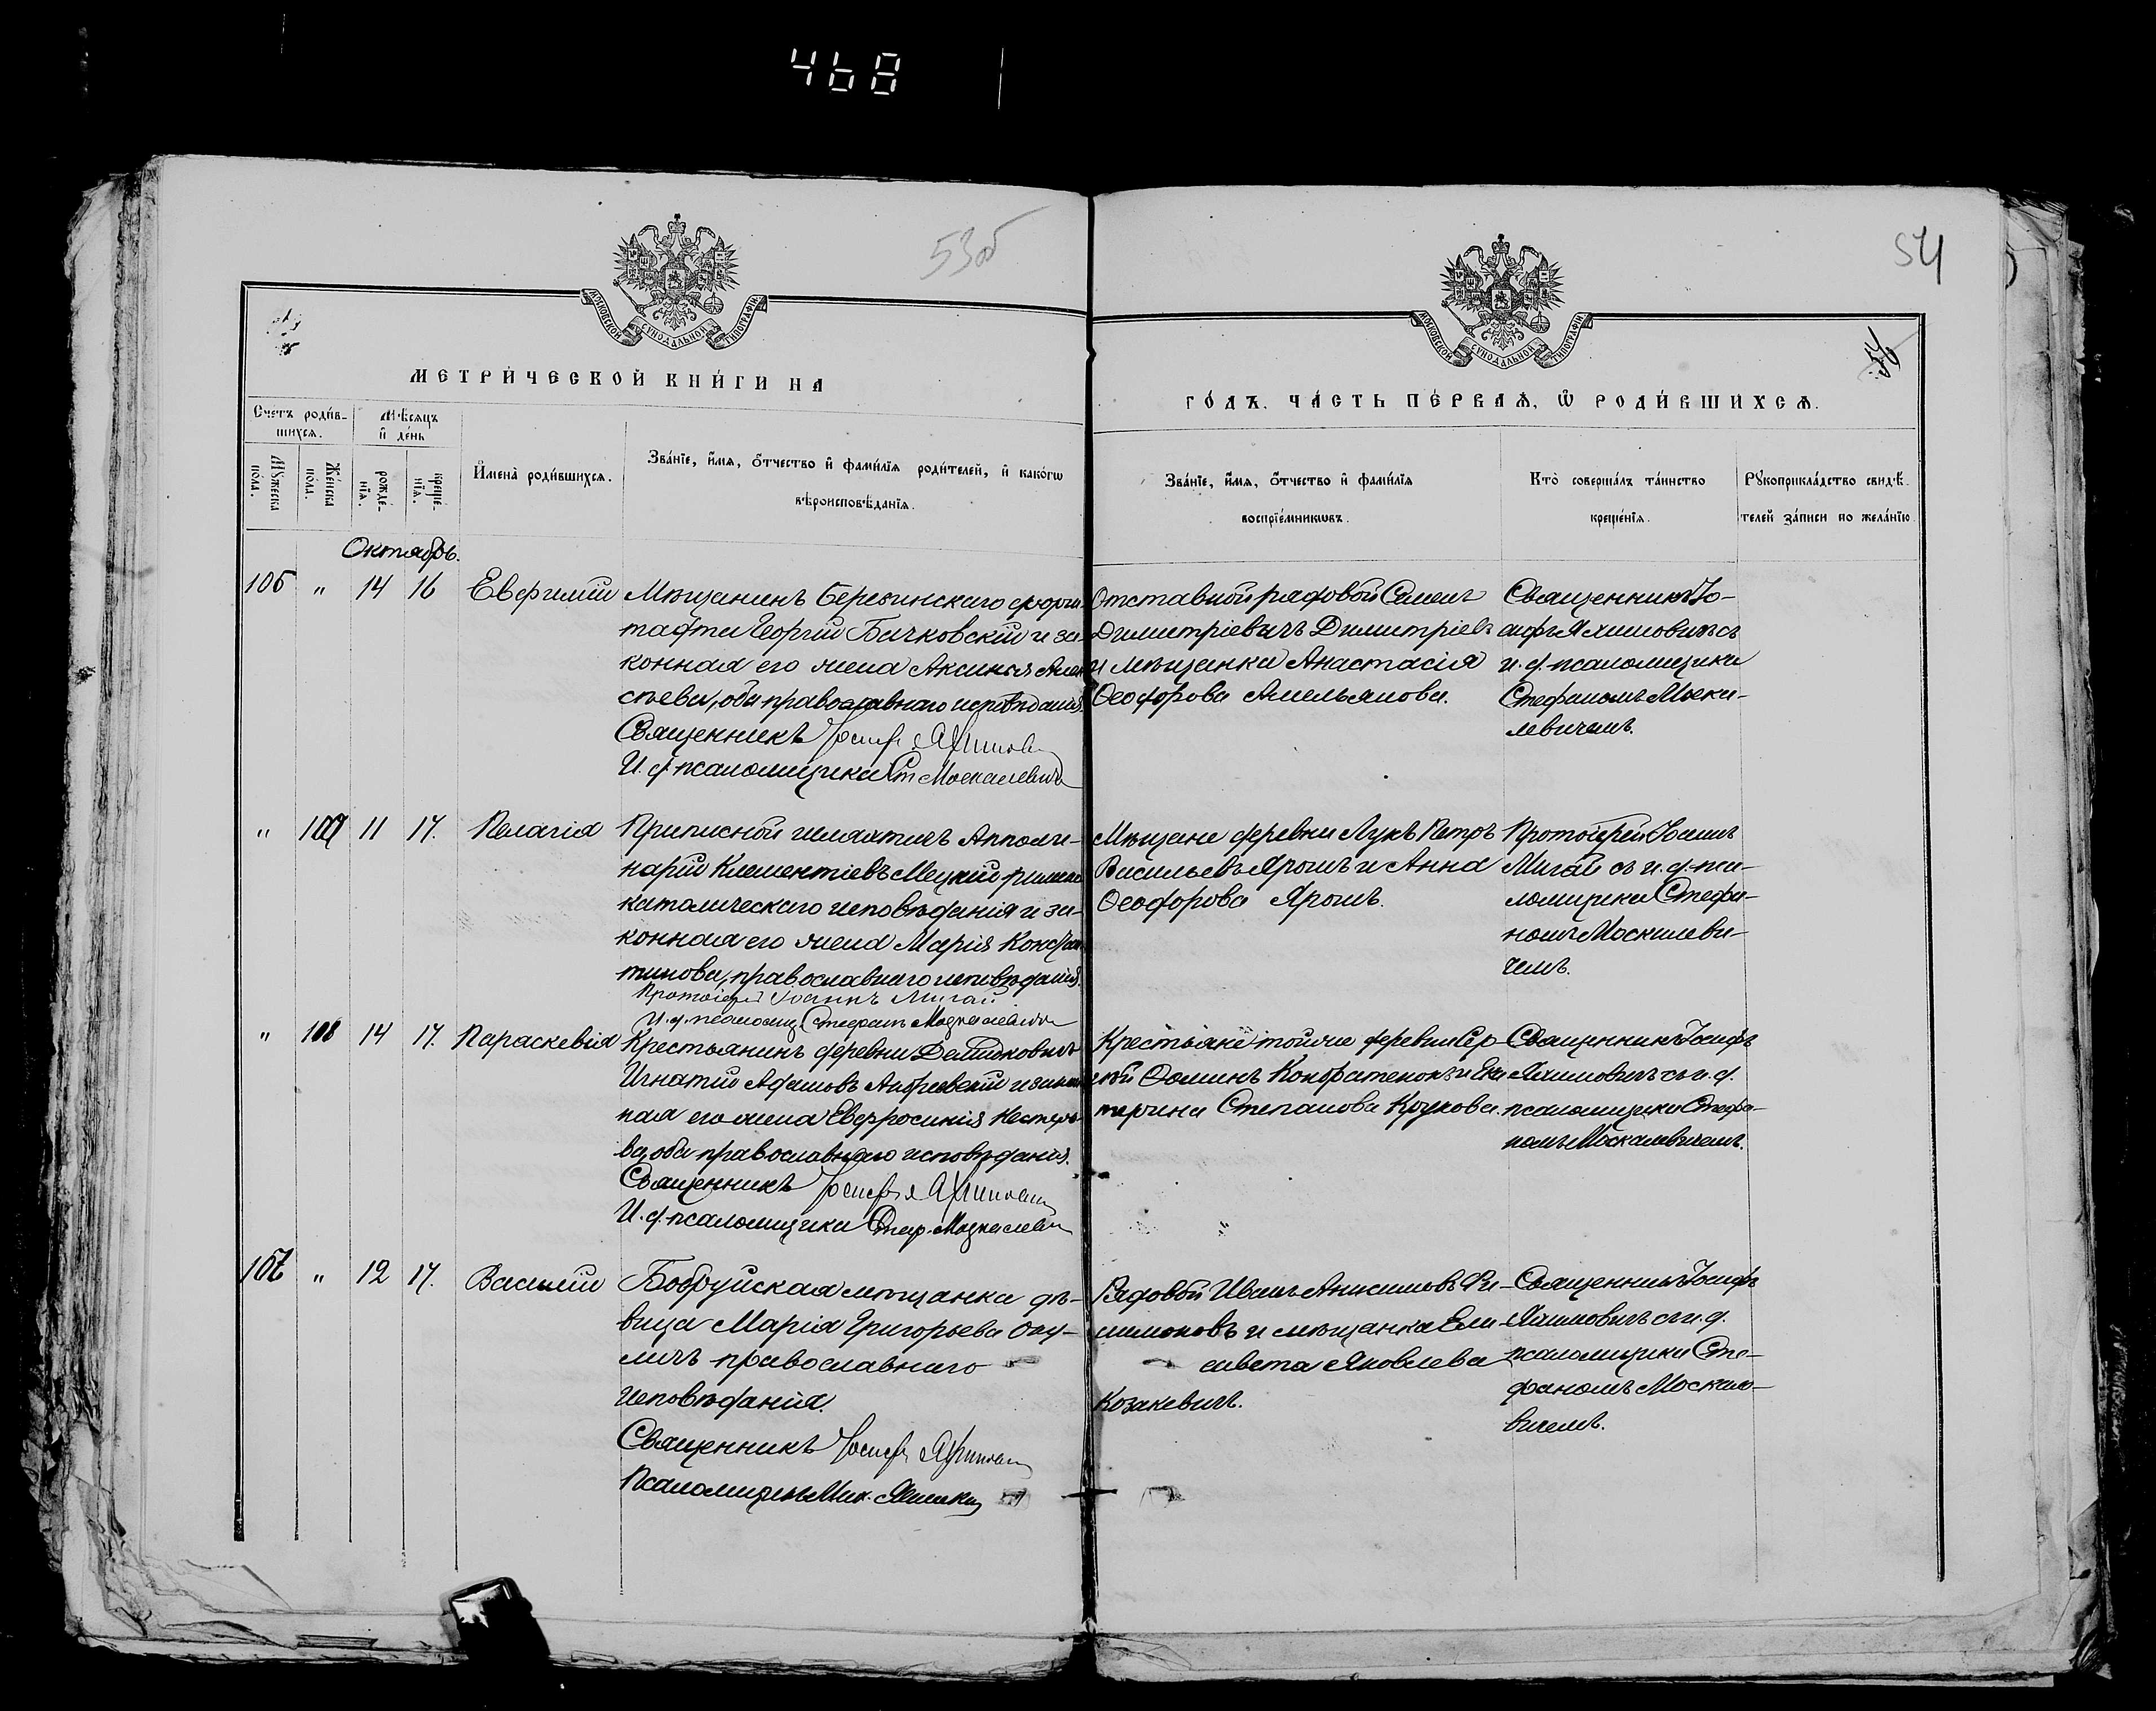 468
53об
54
МОСКОВСКОЙ СУНОДАЛЬНОЙ ТИПОГРАФІИ
МОСКОВСКОЙ СУНОДАЛЬНОЙ ТИПОГРАФІИ
МЕТРИ́ЧЕСКОЙ КНИ́ГИ НА
ГО́ДЪ, ЧА́СТЬ ПЕ́РВАѦ, Ѡ РОДИ́ВШИХСѦ.
Счетъ роди́в-
шихсѧ.
Мѣсѧцъ
и҆ де́нь
Мꙋжеска
пола.
Же́нска
по́ла.
рожде́-
нїѧ.
креще́-
нїѧ.
И҆мена̀ роди́вшихсѧ.
Зва́нїе, и҆́мѧ, ѻ҆́тчество и҆ фами́лїѧ роди́телей, и҆ како́гѡ
вѣроисповѣ́данїѧ.
Зва́нїе, и҆́мѧ, ѻ҆́тчество и҆ фами́лїѧ
воспрїе́мникѡвъ.
Кто̀ соверша́лъ та́инство
креще́нїѧ.
Рꙋкоприкла́дство свидѣ́-
телей за́писи по жела́нїю.
Октябрь.
106 " 14 16 Евфимій
Мѣщанинъ Березинскаго форш-
тадта Георгій Бычковскій и за-
конная его жена Аксинія
обы православнаго исповѣданія.
Священникъ Іосифъ
И. д. псаломщика Ст Москалевичъ
Отставной рядовой Семенъ
Димитріевичъ Димитріевъ
и мѣщанка Анастасія
Ѳеодорова Амельянова.
Священникъ Іо-
сифъ съ
и. д. псаломщика
Стефаномъ Моска-
левичемъ.
" 107 11 17. Пелагія
Приписной шляхтичъ Апполи-
нарій Клементіевъ Мецкій римско
католическаго исповѣданія и за-
конная его жена Марія Констан-
тинова, православнаго исповѣданія.
Протоіерей Іоаннъ Мигай
И. д. псаломщ. Стефанъ Москалевичъ
Мѣщане деревни Лукъ Петръ
Васильевъ Ярошъ и Анна
Ѳеодорова Ярошъ.
Протоіерей Іоаннъ
Мигай съ и. д. пса-
ломщика Стефа-
номъ Москалеви-
чемъ.
" 108 14 17. Параскевія
Крестьянинъ деревни Демидковичъ
Игнатій Адамовъ и закон-
ная его жена Евфросинія Нестеро-
ва, оба православнаго исповѣданія.
Священникъ Іосифъ
И. д. псаломщика Стеф. Москалевичъ
Крестьяне тойже деревни
Ѳоминъ Кондратенокъ и Ека-
терина Степанова Крукова.
Священникъ Іосифъ
съ и. д.
псаломщика Стефа-
номъ Москалевичемъ.
107 " 12 17. Василій
Бобруйская мѣщанка дѣ-
вица Марія Григорьева Оку-
личъ православнаго
исповѣданія.
Священникъ Іосифъ
Псаломщикъ Мих.
Рядовой Иванъ Анисимовъ Фи-
лимоновъ и мѣщанка Ели-
савета Яковлева
Козакевичъ.
Священникъ Іосифъ
съ и. д.
псаломщика Сте-
фаномъ Москале-
вичемъ.